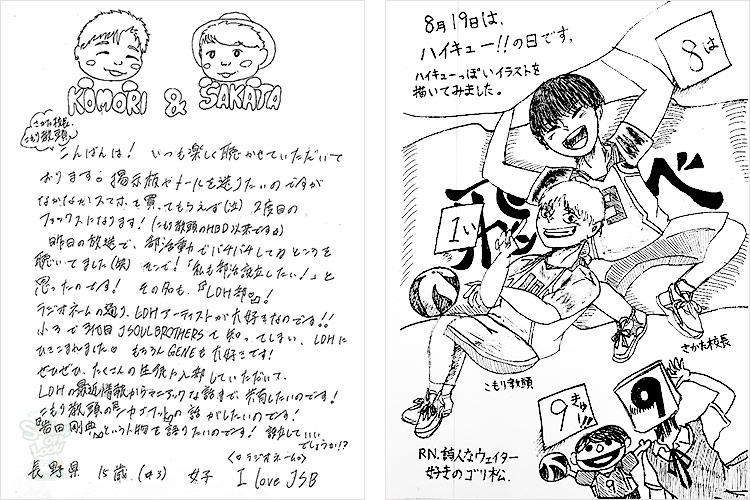 KOMORI & SAKATA
さかた校長、
こもり教頭
こんばんは! いつも楽しく聴かせていただいて
おります。掲示板やメールを送りたいのですが
なかなかスマホを買ってもらえず(泣) 2度目の
ファックスになります!(こもり教頭のHBD以来ですね)
昨日の放送で、部活動でバチバチしてるところを
聴いてました(笑) そこで!「私も部活設立したい!」と
思ったのです! その名も、『LDH部』!
ラジオネームの通り、LDHアーティストが大好きなのです!!
小3で三代目 J SOUL BROTHERSを知ってしまい、LDHに
ひきこまれました もちろんGENEも大好きです!
ぜひぜひ、たくさんの生徒に入部していただいて、
LDHの最近情報からマニアックな話まで共有したいのです!
こもり教頭の
の話がしたいのです!
「岩田剛典」という人物を語りたいのです! 設立していい
でしょうか!?
長野県 15歳(中3) 女子 <ラジオネーム> I love JSB
8月19日は、
ハイキュー!!の日です。
ハイキューっぽいイラストを
描いてみました。
8は
1い
9きゅー!!
9
べ
さかた校長
こもり教頭
RN.詩人なウェイター
好きのゴリ松.